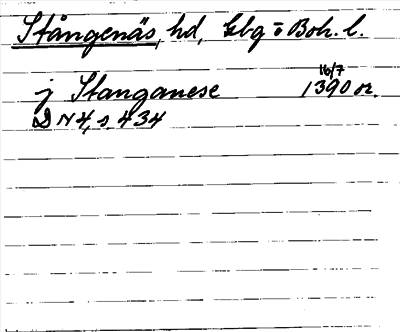 Stångenäs, hd, Gbg o Boh. l.
16/7
j Stanganese 1390 or.
D N 4, s. 434